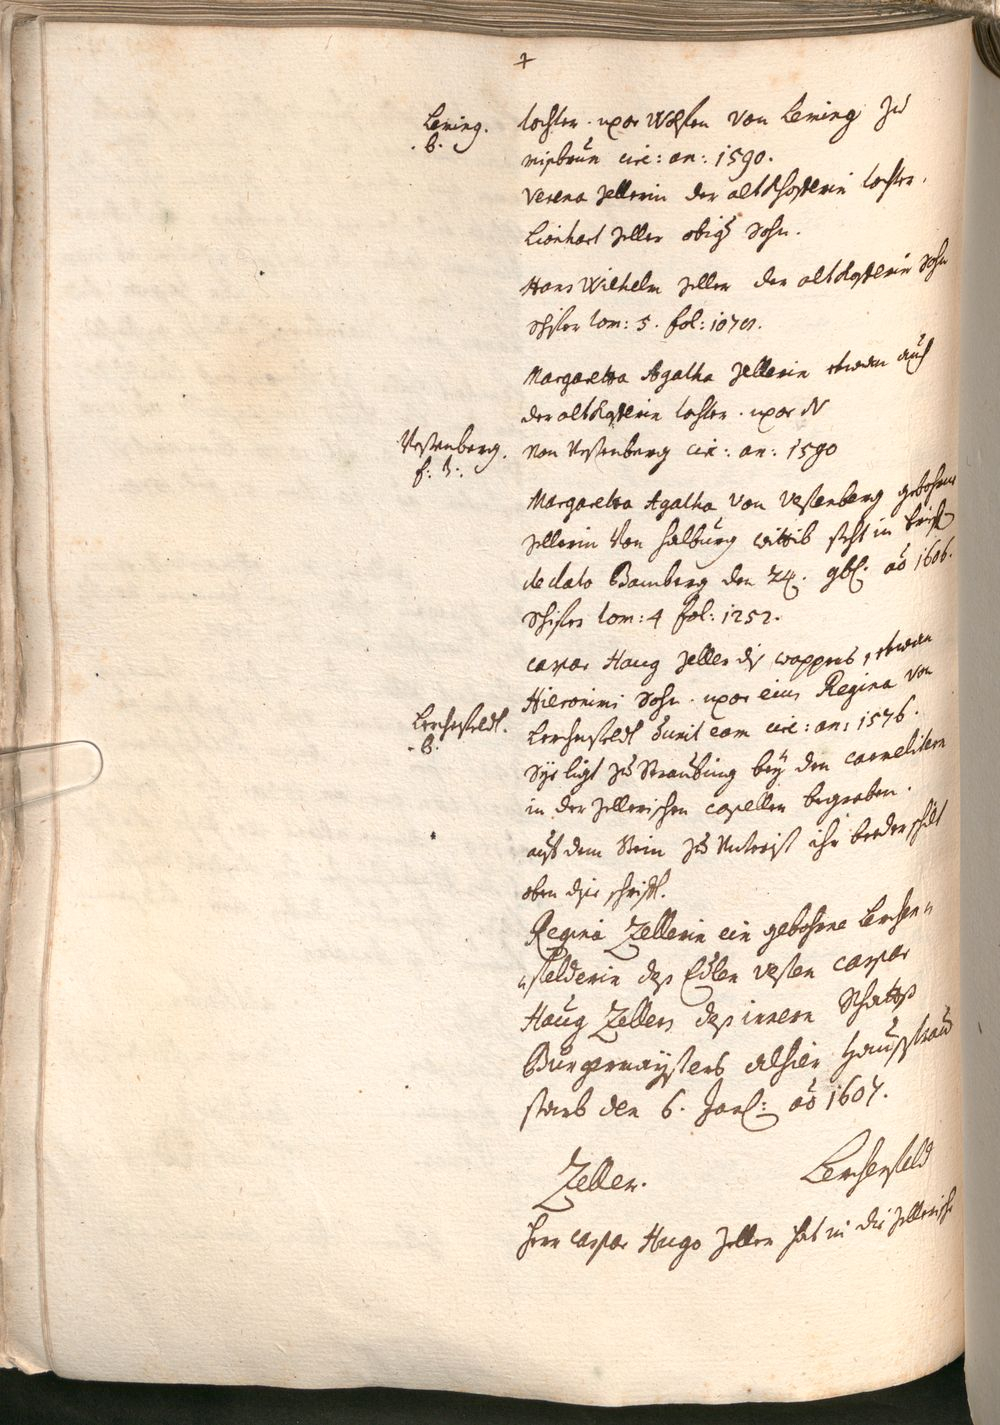 +
Leming.
.B.
tochter. uxor Wolffen von Leming zu
cir: an: 1590.
Verena Zellerin der tochter.
Lienhart Zeller obigs Sohn.
Hans Wilhelm Zeller der Sohn
tom: 5. fol: 1070.
Margaretha Agatha Zellerin etwan auch
der tochter. uxor N
Vestenberg.
f: b:
von Vestenberg cir: an: 1590
Margaretha Agatha von Vestenberg gebohrne
Zellerin von Halburg wittib steht in brief
de dato Bamberg den 24. 9br. ao 1606.
tom: 4 fol: 1252.
Caspar Haug Zeller dis wappens, etwan
Hieronimi Sohn. uxor eius Regina von
Lerchenfeldt.
.B.
Lerchenfeldt duxit eam cir: an: 1576.
Sye ligt zu Straubing bey den Carmelitern
in der Zellerischen Capellen begraben.
auf dem Stein zu Unterist ihr beeder schilt
oben dise schrifft.
Regina Zellerin ein gebohrne Lerchen„
„felderin deß Edlen vesten Caspar
Haug Zellers deß innern Rhatß
Burgermaisters alhier Haußfrau
starb den 6. Jan: ao 1607.
Zeller. Lerchenfeld
Herr Caspar Hugo Zeller hat in die Zellerische